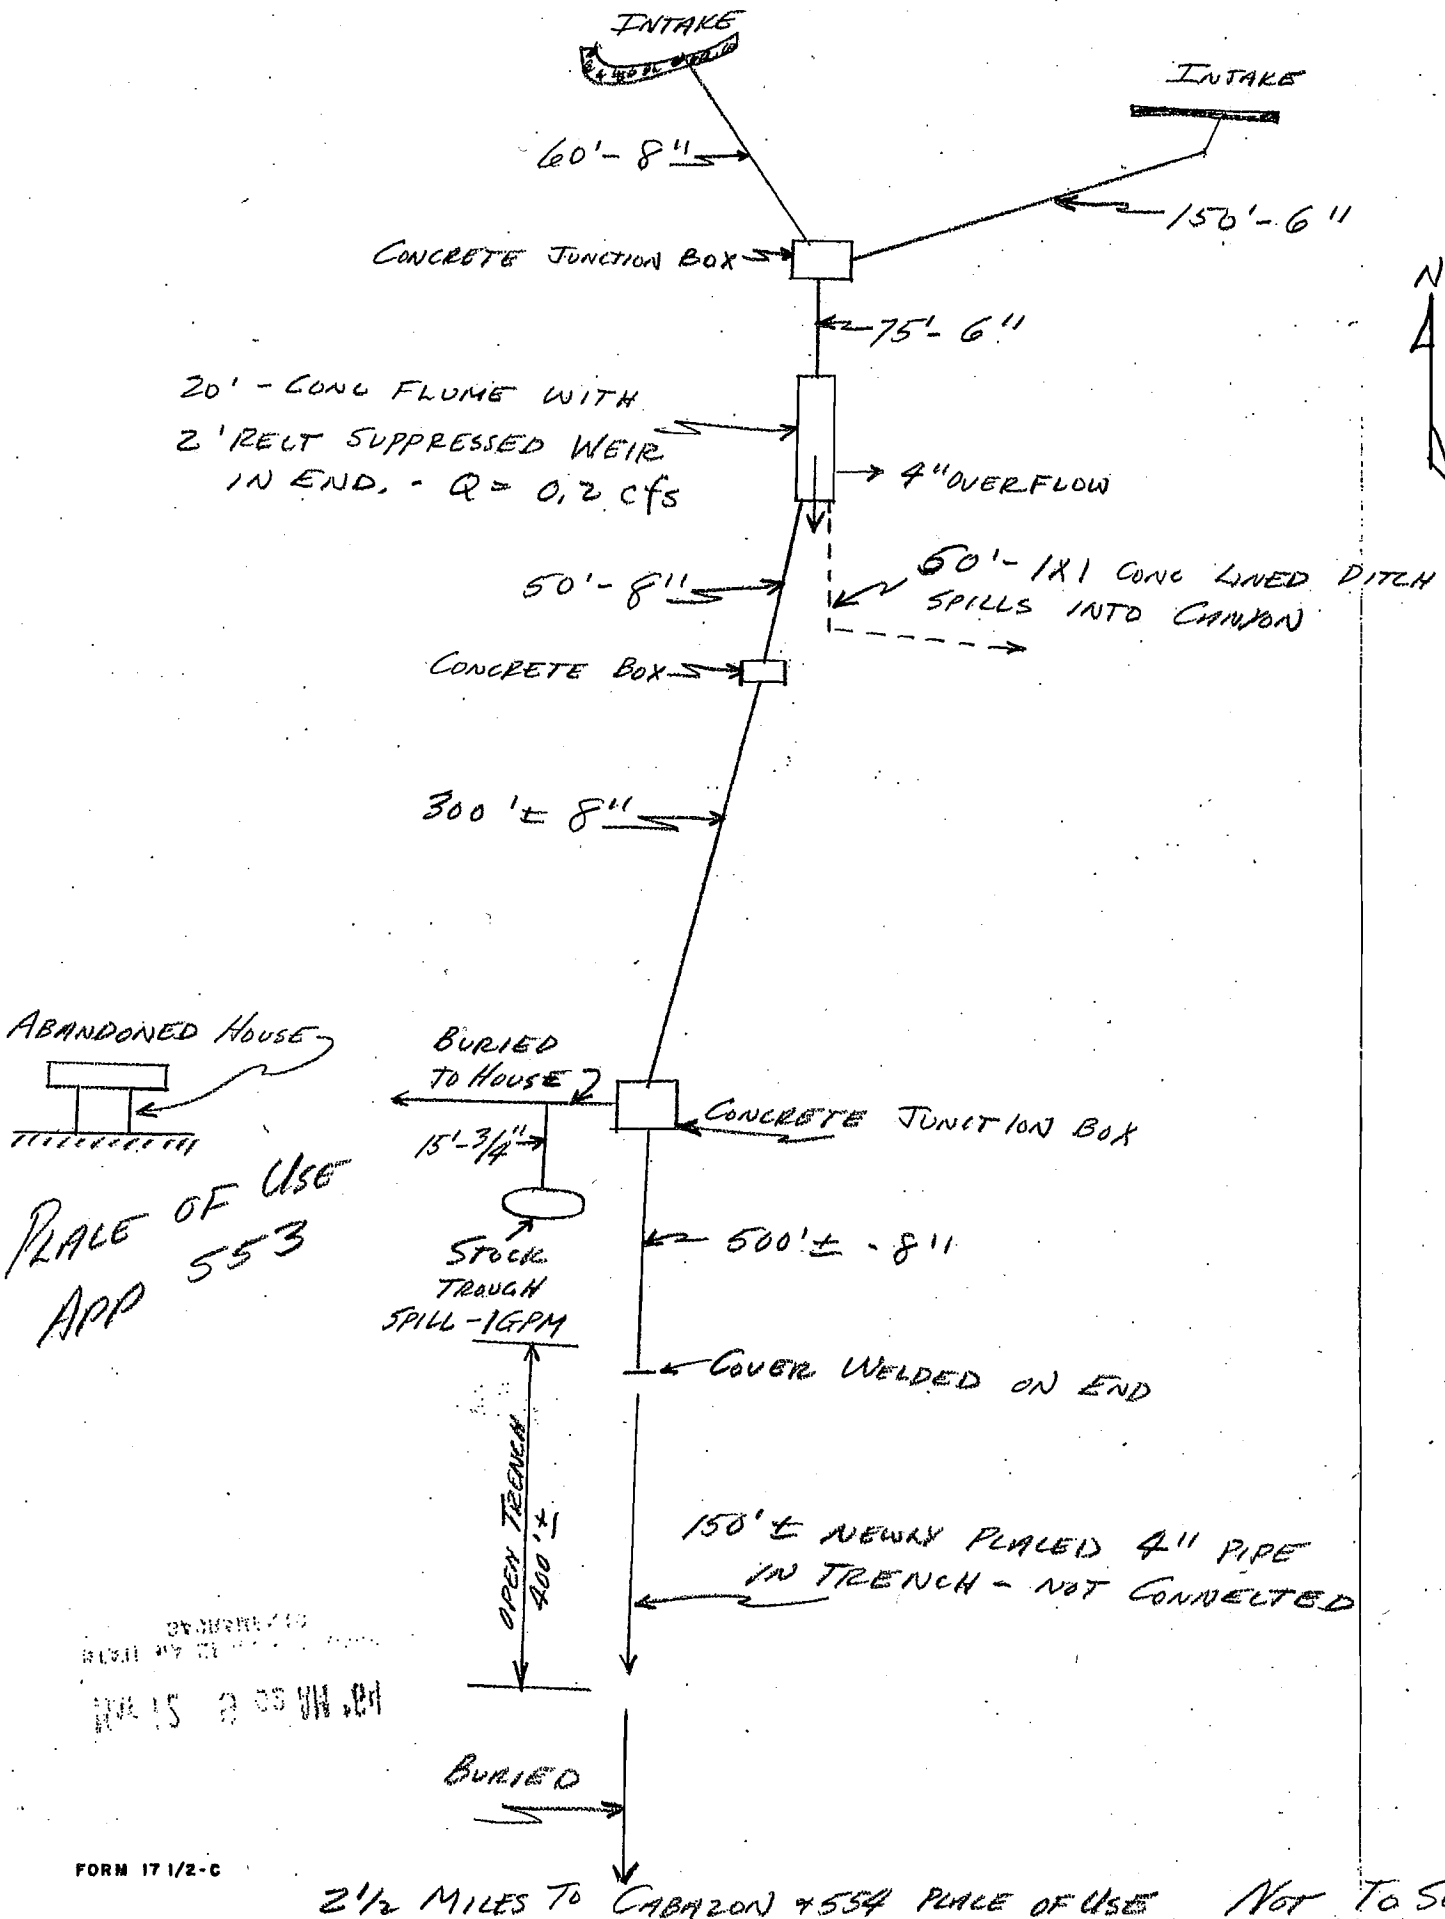 INTAKE
INTAKE
60'- 8"
150'- 6"
CONCRETE JUNCTION BOX
N
75'- 6"
20' - CONC FLUME WITH
2' RECT SUPPRESSED WEIR
IN END. - Q = 0.2 cfs
4" OVERFLOW
50'- 8"
50'- 1X1 CONC LINED DITCH
SPILLS INTO CANYON
CONCRETE BOX
300'± 8"
ABANDONED HOUSE
BURIED
TO HOUSE
CONCRETE JUNCTION BOX
15'-3/4"
PLACE OF USE
APP 553
STOCK
TROUGH
SPILL-1GPM
500'± - 8"
COVER WELDED ON END
OPEN TRENCH
400'±
150'± NEWLY PLACED 4" PIPE
IN TRENCH - NOT CONNECTED
MAR 12 9 02 AM '84
BURIED
FORM 17 1/2-C
2 1/2 MILES TO CABAZON & 554 PLACE OF USE
NOT TO